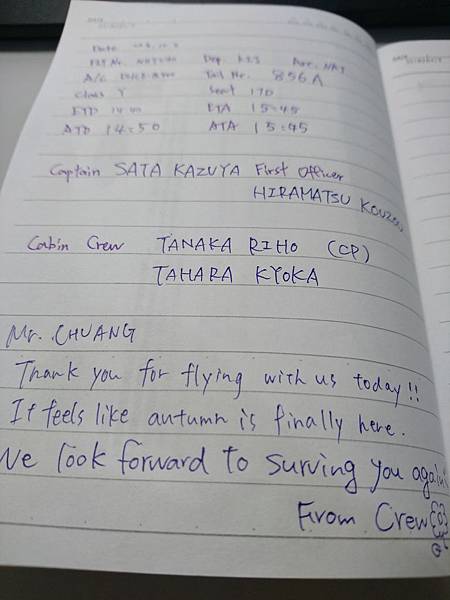 Date
Flt No. Dep. Arr.
A/C Tail No. 856A
Class Y Seat 17D
ETD 14:40 ETA 15:45
ATD 14:50 ATA 15:45
Captain SATA KAZUYA First Officer
HIRAMATSU KOUZOU
Cabin Crew TANAKA RIHO (CP)
TAHARA KYOKA
Mr. CHUANG
Thank you for flying with us today!!
It feels like autumn is finally here.
We look forward to surving you again!
From Crew